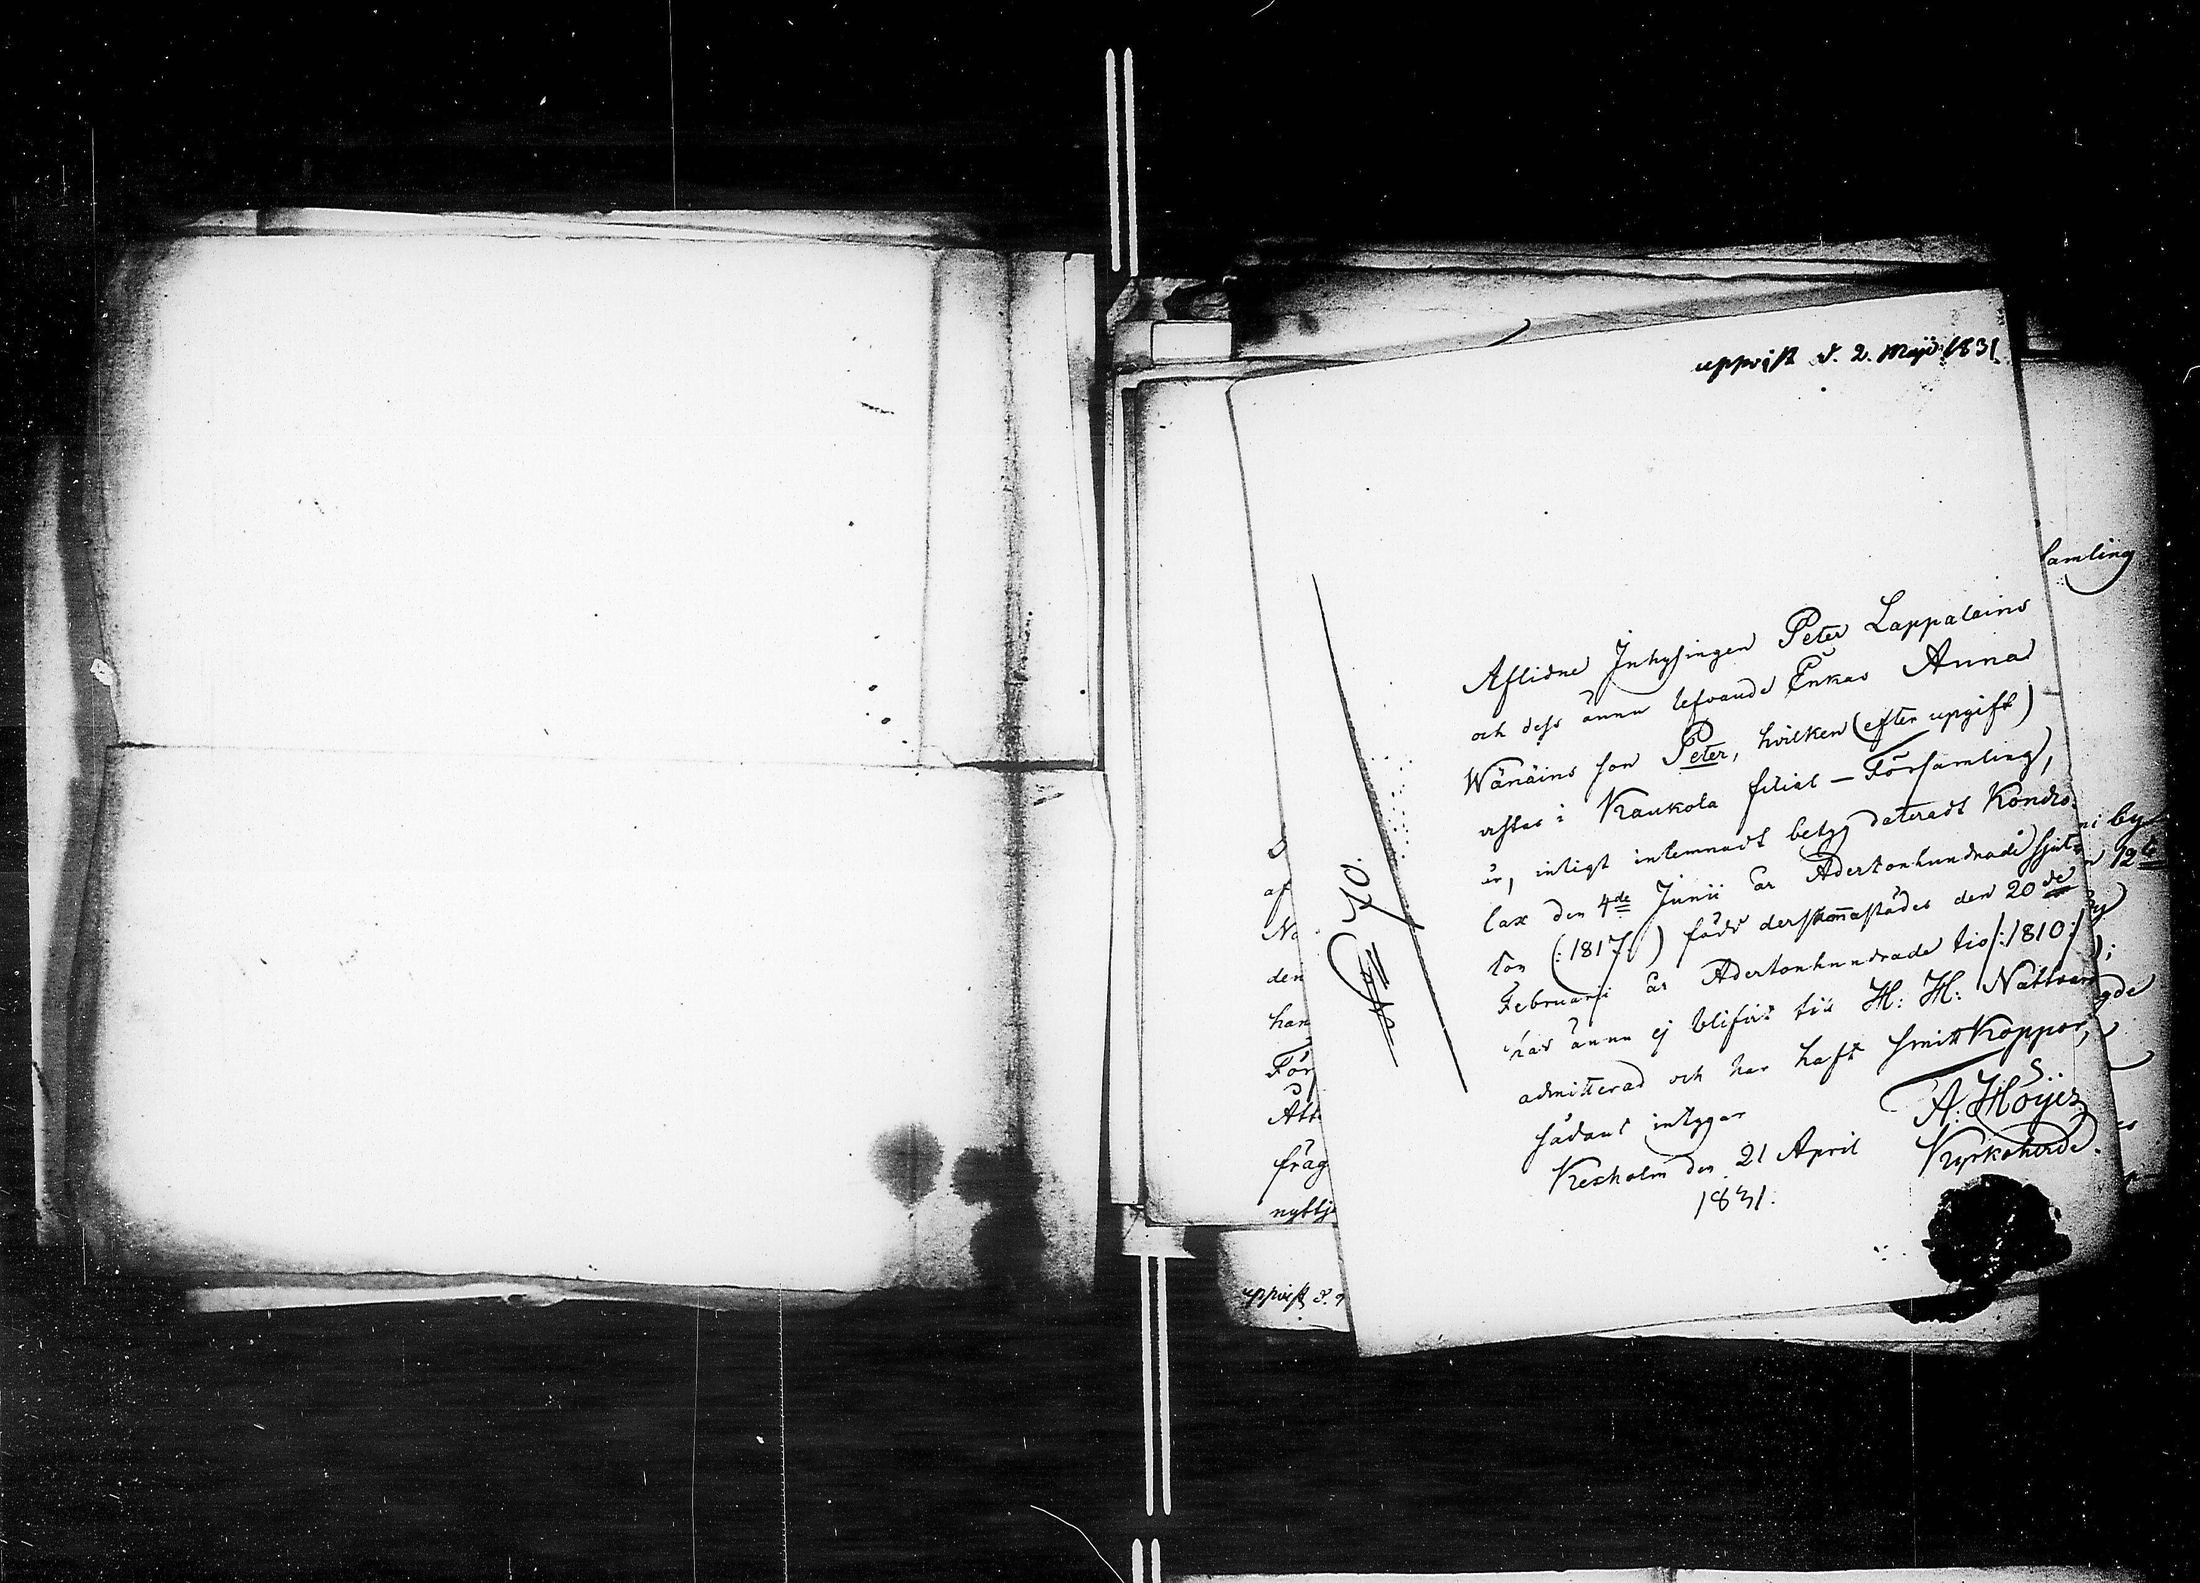 uppvist d. 2. Maji 1831
Aflidne Inhysingen Peter Lappalains
och dess ännu lefvande Enkas Anna
Wänäins son Peter, hvilken (efter upgift)
vistas i Kaukola filial-Församling,
är, enligt inlemnadt betyg dateradt Kondio
lax den 4de Junii år Adertonhundrade sjut
ton (:1817:) född derstammastädes den 20de
Februarii år Adertonhundrade tio /:1810:/
har ännu ej blifvit till H: H: Nattvard
admitterad och har haft smittkoppor,
sådant intygar
Kexholm den 21 April
1831.
A: Höijer
Kyrkoherde.
No 70.
samling
by
12te
gde
af
No
den
han
För
Att
fråg
nyttj
uppvist d.